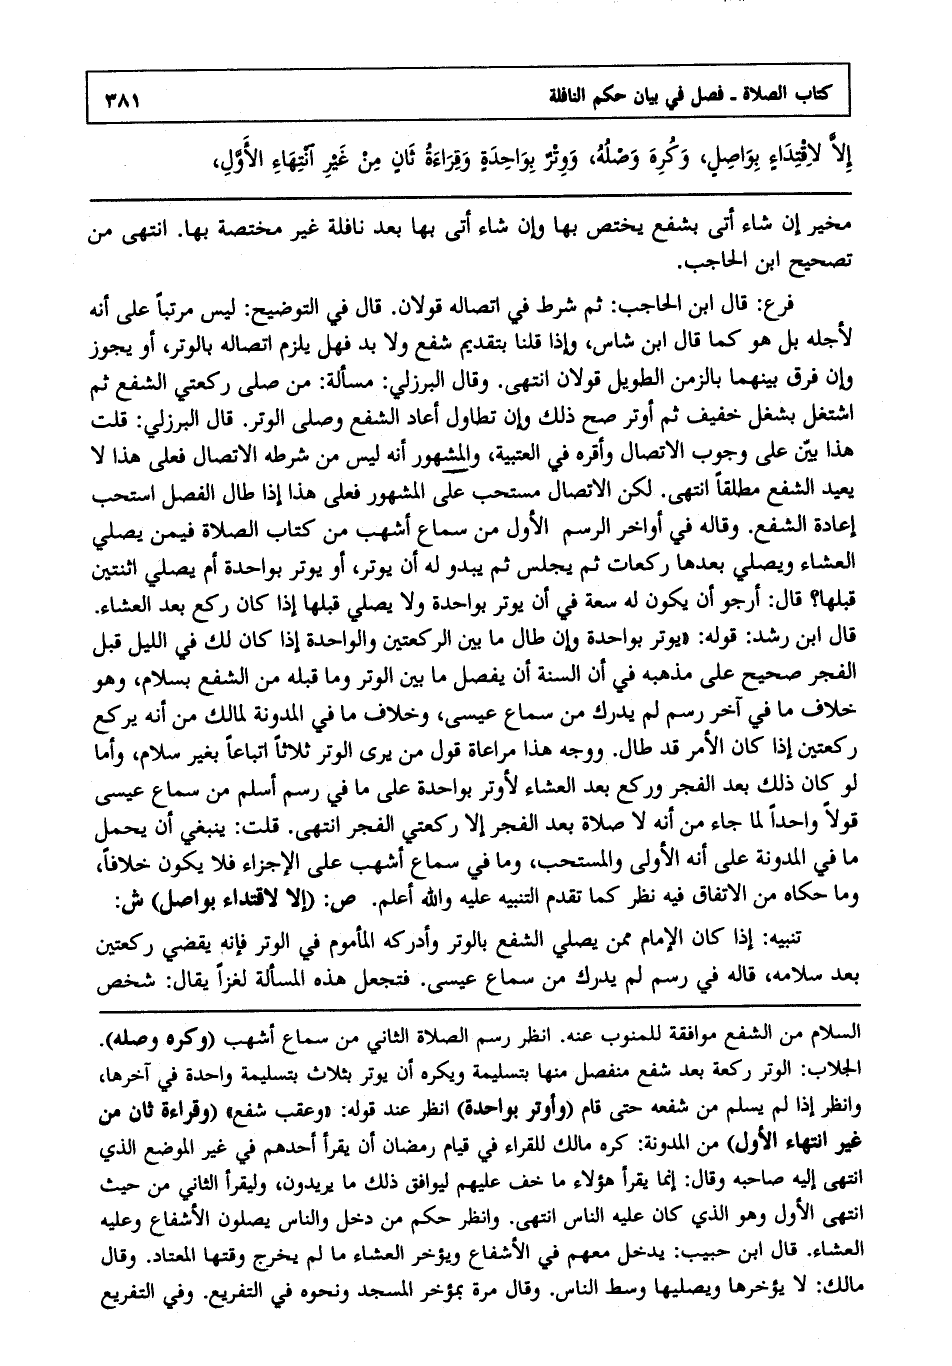 كتاب الصلاة ـ فصل في بيان حكم النافلة ٣٨١
إِلاَّ لاقْتِدَاءٍ بِوَاصِلٍ، وَكُرِهَ وَصْلُهُ، وَوِتْرٌ بِوَاحِدَةٍ وَقِرَاءَةُ ثَانٍ مِنْ غَيْرِ آنْتِهَاءِ الأَوَّلِ،
مخير إن شاء أتى بشفع يختص بها وإن شاء أتى بها بعد نافلة غير مختصة بها. انتهى من
تصحيح ابن الحاجب.
فرع: قال ابن الحاجب: ثم شرط في اتصاله قولان. قال في التوضيح: ليس مرتباً على أنه
لأجله بل هو كما قال ابن شاس، وإذا قلنا بتقديم شفع ولا بد فهل يلزم اتصاله بالوتر، أو يجوز
وإن فرق بينهما بالزمن الطويل قولان انتهى. وقال البرزلي: مسألة: من صلى ركعتي الشفع ثم
اشتغل بشغل خفيف ثم أوتر صح ذلك وإن تطاول أعاد الشفع وصلى الوتر. قال البرزلي: قلت
هذا بيّن على وجوب الاتصال وأقره في العتبية، والمشهور أنه ليس من شرطه الاتصال فعلى هذا لا
يعيد الشفع مطلقاً انتهى. لكن الاتصال مستحب على المشهور فعلى هذا إذا طال الفصل استحب
إعادة الشفع. وقاله في أواخر الرسم الأول من سماع أشهب من كتاب الصلاة فيمن يصلي
العشاء ويصلي بعدها ركعات ثم يجلس ثم يبدو له أن يوتر، أو يوتر بواحدة أم يصلي اثنتين
قبلها؟ قال: أرجو أن يكون له سعة في أن يوتر بواحدة ولا يصلي قبلها إذا كان ركع بعد العشاء.
قال ابن رشد: قوله: «يوتر بواحدة وإن طال ما بين الركعتين والواحدة إذا كان لك في الليل قبل
الفجر صحيح على مذهبه في أن السنة أن يفصل ما بين الوتر وما قبله من الشفع بسلام، وهو
خلاف ما في آخر رسم لم يدرك من سماع عيسى، وخلاف ما في المدونة لمالك من أنه يركع
ركعتين إذا كان الأمر قد طال. ووجه هذا مراعاة قول من يرى الوتر ثلاثاً اتباعاً بغير سلام، وأما
لو كان ذلك بعد الفجر وركع بعد العشاء لأوتر بواحدة على ما في رسم أسلم من سماع عيسى
قولاً واحداً لما جاء من أنه لا صلاة بعد الفجر إلا ركعتي الفجر انتهى. قلت: ينبغي أن يحمل
ما في المدونة على أنه الأولى والمستحب، وما في سماع أشهب على الإجزاء فلا يكون خلافاً،
وما حكاه من الاتفاق فيه نظر كما تقدم التنبيه عليه والله أعلم. ص: (إلا لاقتداء بواصل) ش:
تنبيه: إذا كان الإمام ممن يصلي الشفع بالوتر وأدركه المأموم في الوتر فإنه يقضي ركعتين
بعد سلامه، قاله في رسم لم يدرك من سماع عيسى. فتجعل هذه المسألة لغزاً يقال: شخص
السلام من الشفع موافقة للمنوب عنه. انظر رسم الصلاة الثاني من سماع أشهب (وكره وصله).
الجلاب: الوتر ركعة بعد شفع منفصل منها بتسليمة ويكره أن يوتر بثلاث بتسليمة واحدة في آخرها،
وانظر إذا لم يسلم من شفعه حتى قام (وأوتر بواحدة) انظر عند قوله: «وعقب شفع» (وقراءة ثان من
غير انتهاء الأول) من المدونة: كره مالك للقراء في قيام رمضان أن يقرأ أحدهم في غير الموضع الذي
انتهى إليه صاحبه وقال: إنما يقرأ هؤلاء ما خف عليهم ليوافق ذلك ما يريدون، وليقرأ الثاني من حيث
انتهى الأول وهو الذي كان عليه الناس انتهى. وانظر حكم من دخل والناس يصلون الأشفاع وعليه
العشاء. قال ابن حبيب: يدخل معهم في الأشفاع ويؤخر العشاء ما لم يخرج وقتها المعتاد. وقال
مالك: لا يؤخرها ويصليها وسط الناس. وقال مرة بمؤخر المسجد ونحوه في التفريع. وفي التفريع